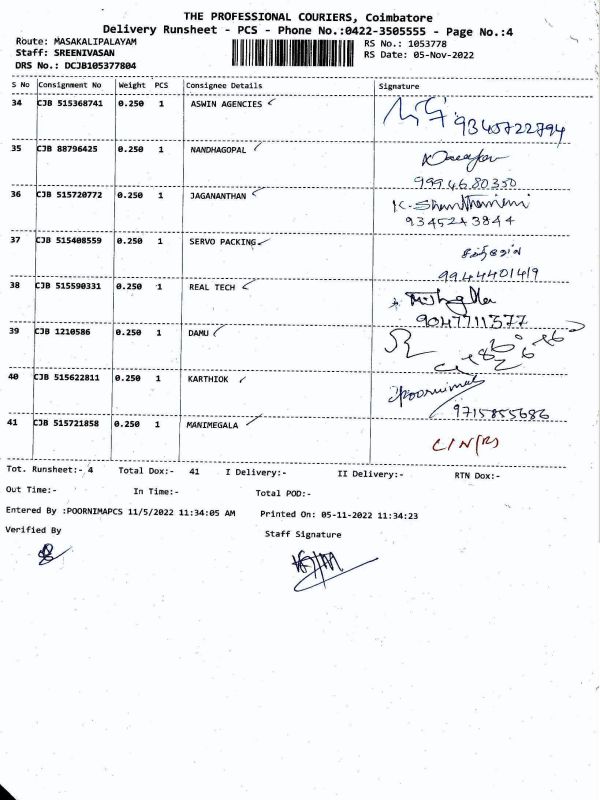 THE PROFESSIONAL COURIERS, Coimbatore
Delivery Runsheet - PCS - Phone No.:0422-3505555 - Page No.:4
Route: MASAKALIPALAYAM RS No.: 1053778
Staff: SREENIVASAN RS Date: 05-Nov-2022
DRS No.: DCJB105377804
S No Consignment No Weight PCS Consignee Details Signature
34 CJB 515368741 0.250 1 ASWIN AGENCIES 9345722794
35 CJB 88796425 0.250 1 NANDHAGOPAL
9994680350
36 CJB 515720772 0.250 1 JAGANATHAN K. Shanthamani
9345243844
37 CJB 515408559 0.250 1 SERVO PACKING
9944401419
38 CJB 515590331 0.250 1 REAL TECH
9047711377
39 CJB 1210586 0.250 1 DAMU
40 CJB 515622811 0.250 1 KARTHIOK Poornima
9715855686
41 CJB 515721858 0.250 1 MANIMEGALA C/N(RS)
Tot. Runsheet:- 4 Total Dox:- 41 I Delivery:- II Delivery:- RTN Dox:-
Out Time:- In Time:- Total POD:-
Entered By :POORNIMAPCS 11/5/2022 11:34:05 AM Printed On: 05-11-2022 11:34:23
Verified By Staff Signature